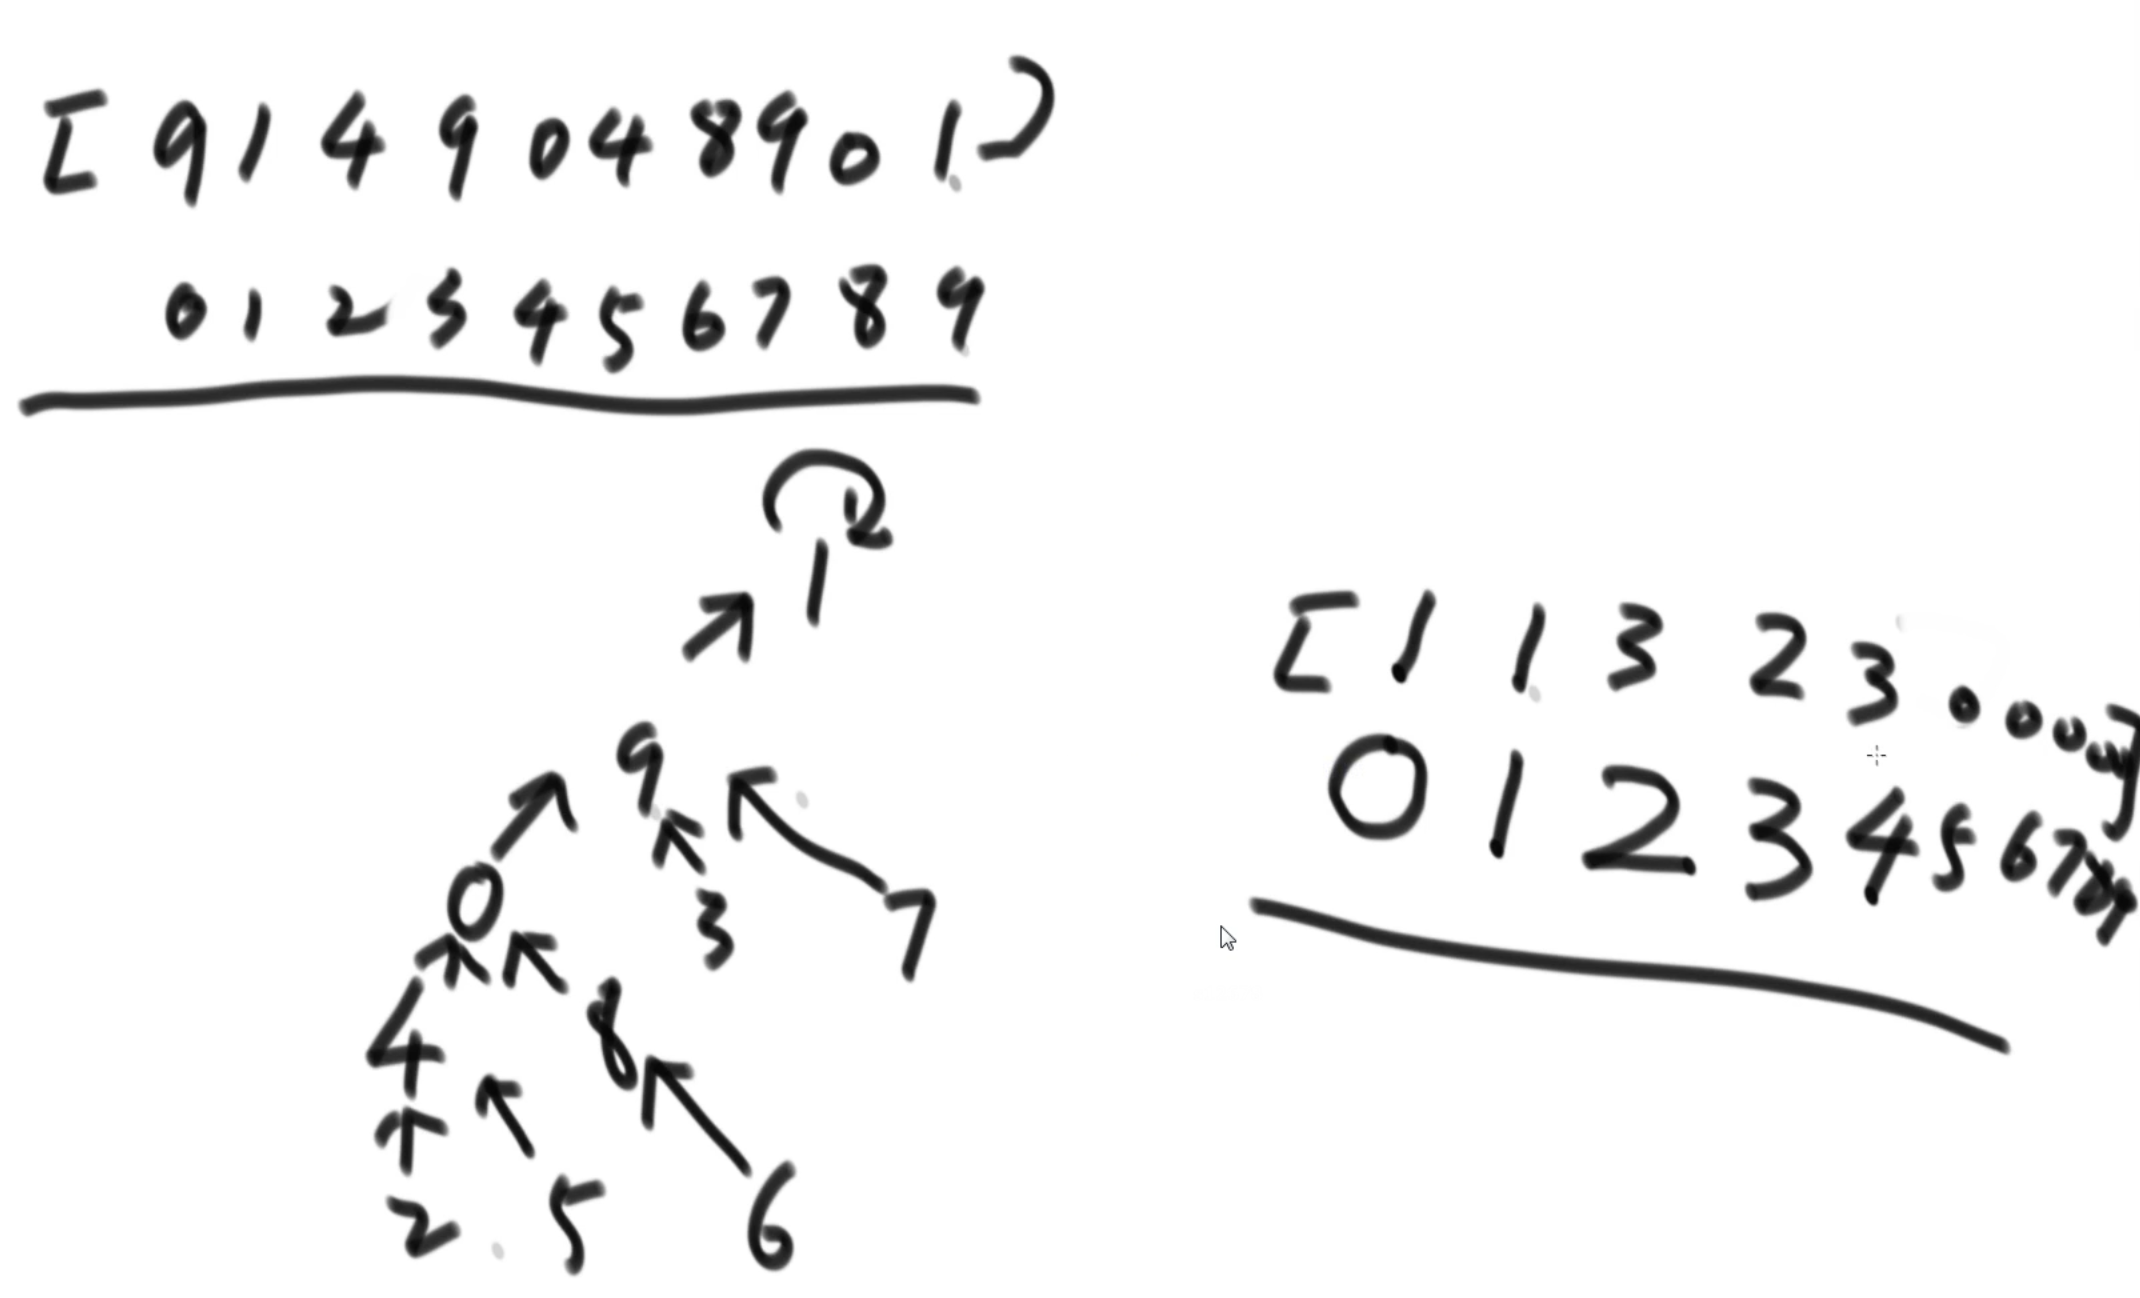 [ 9 1 4 9 0 4 8 9 0 1 ]
0 1 2 3 4 5 6 7 8 9
1
9
0 3 7
4 8
2 5 6
[ 1 1 3 2 3 0 0 0 0 ]
0 1 2 3 4 5 6 7 8 9